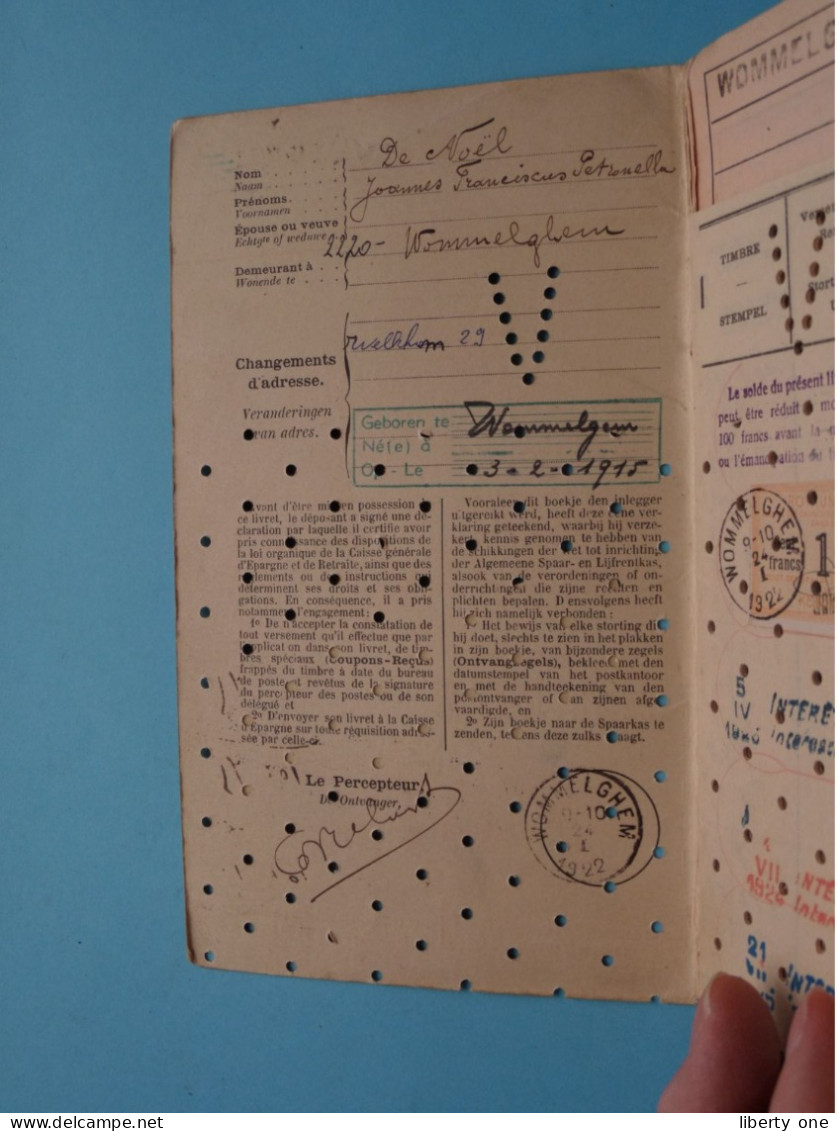 De Noël
Nom
Naam
Joannes Franciscus Petronella
Prénoms.
Voornamen
Épouse ou veuve
Echtgte of weduwe
2220- Wommelghem
Demeurant à
Wonende te
29
Changements
d'adresse.
Veranderingen
van adres.
Geboren te Wommelgem
Né(e) à
Op - Le 3-2-1915
Avant d'être mis en possession de
ce livret, le déposant a signé une dé-
claration par laquelle il certifie avoir
pris connaissance des dispositions de
la loi organique de la Caisse générale
d'Epargne et de Retraite, ainsi que des
règlements ou des instructions qui
déterminent ses droits et ses obli-
gations. En conséquence, il a pris
notamment l'engagement:
1º De n'accepter la constatation de
tout versement qu'il effectue que par
l'application dans son livret, de tim-
bres spéciaux (Coupons-Reçus)
frappés du timbre à date du bureau
de poste et revêtus de la signature
du percepteur des postes ou de son
délégué et
2º D'envoyer son livret à la Caisse
d'Epargne sur toute réquisition adres-
sée par celle-ci
Le Percepteur,
De Ontvanger,
Vooraleer dit boekje den inlegger
uitgereikt werd, heeft deze eene ver-
klaring geteekend, waarbij hij verze-
kert, kennis genomen te hebben van
de schikkingen der wet tot inrichting
der Algemeene Spaar- en Lijfrentkas,
alsook van de verordeningen of on-
derrichtingen die zijne rechten en
plichten bepalen. Dienvolgens heeft
hij zich namelijk verbonden:
1º Het bewijs van elke storting die
hij doet, slechts te zien in het plakken
in zijn boekje, van bijzondere zegels
(Ontvangzegels), bekleed met den
datumstempel van het postkantoor
en met de handteekening van den
postontvanger of van zijnen afge-
vaardigde, en
2º Zijn boekje naar de Spaarkas te
zenden, telkens deze zulks vraagt.
WOMMELGHEM
9-10
24
1
1922
WOMMELG
TIMBRE
—
STEMPEL
Le solde du présent li
peut être réduit à mo
100 francs avant la
ou l'émancipation du
WOMMELGHEM
9-10
24
1
1922
francs
1
5
IV
INTERÊ
Interest
VII
INTE
1924
21
INTER
liberty one